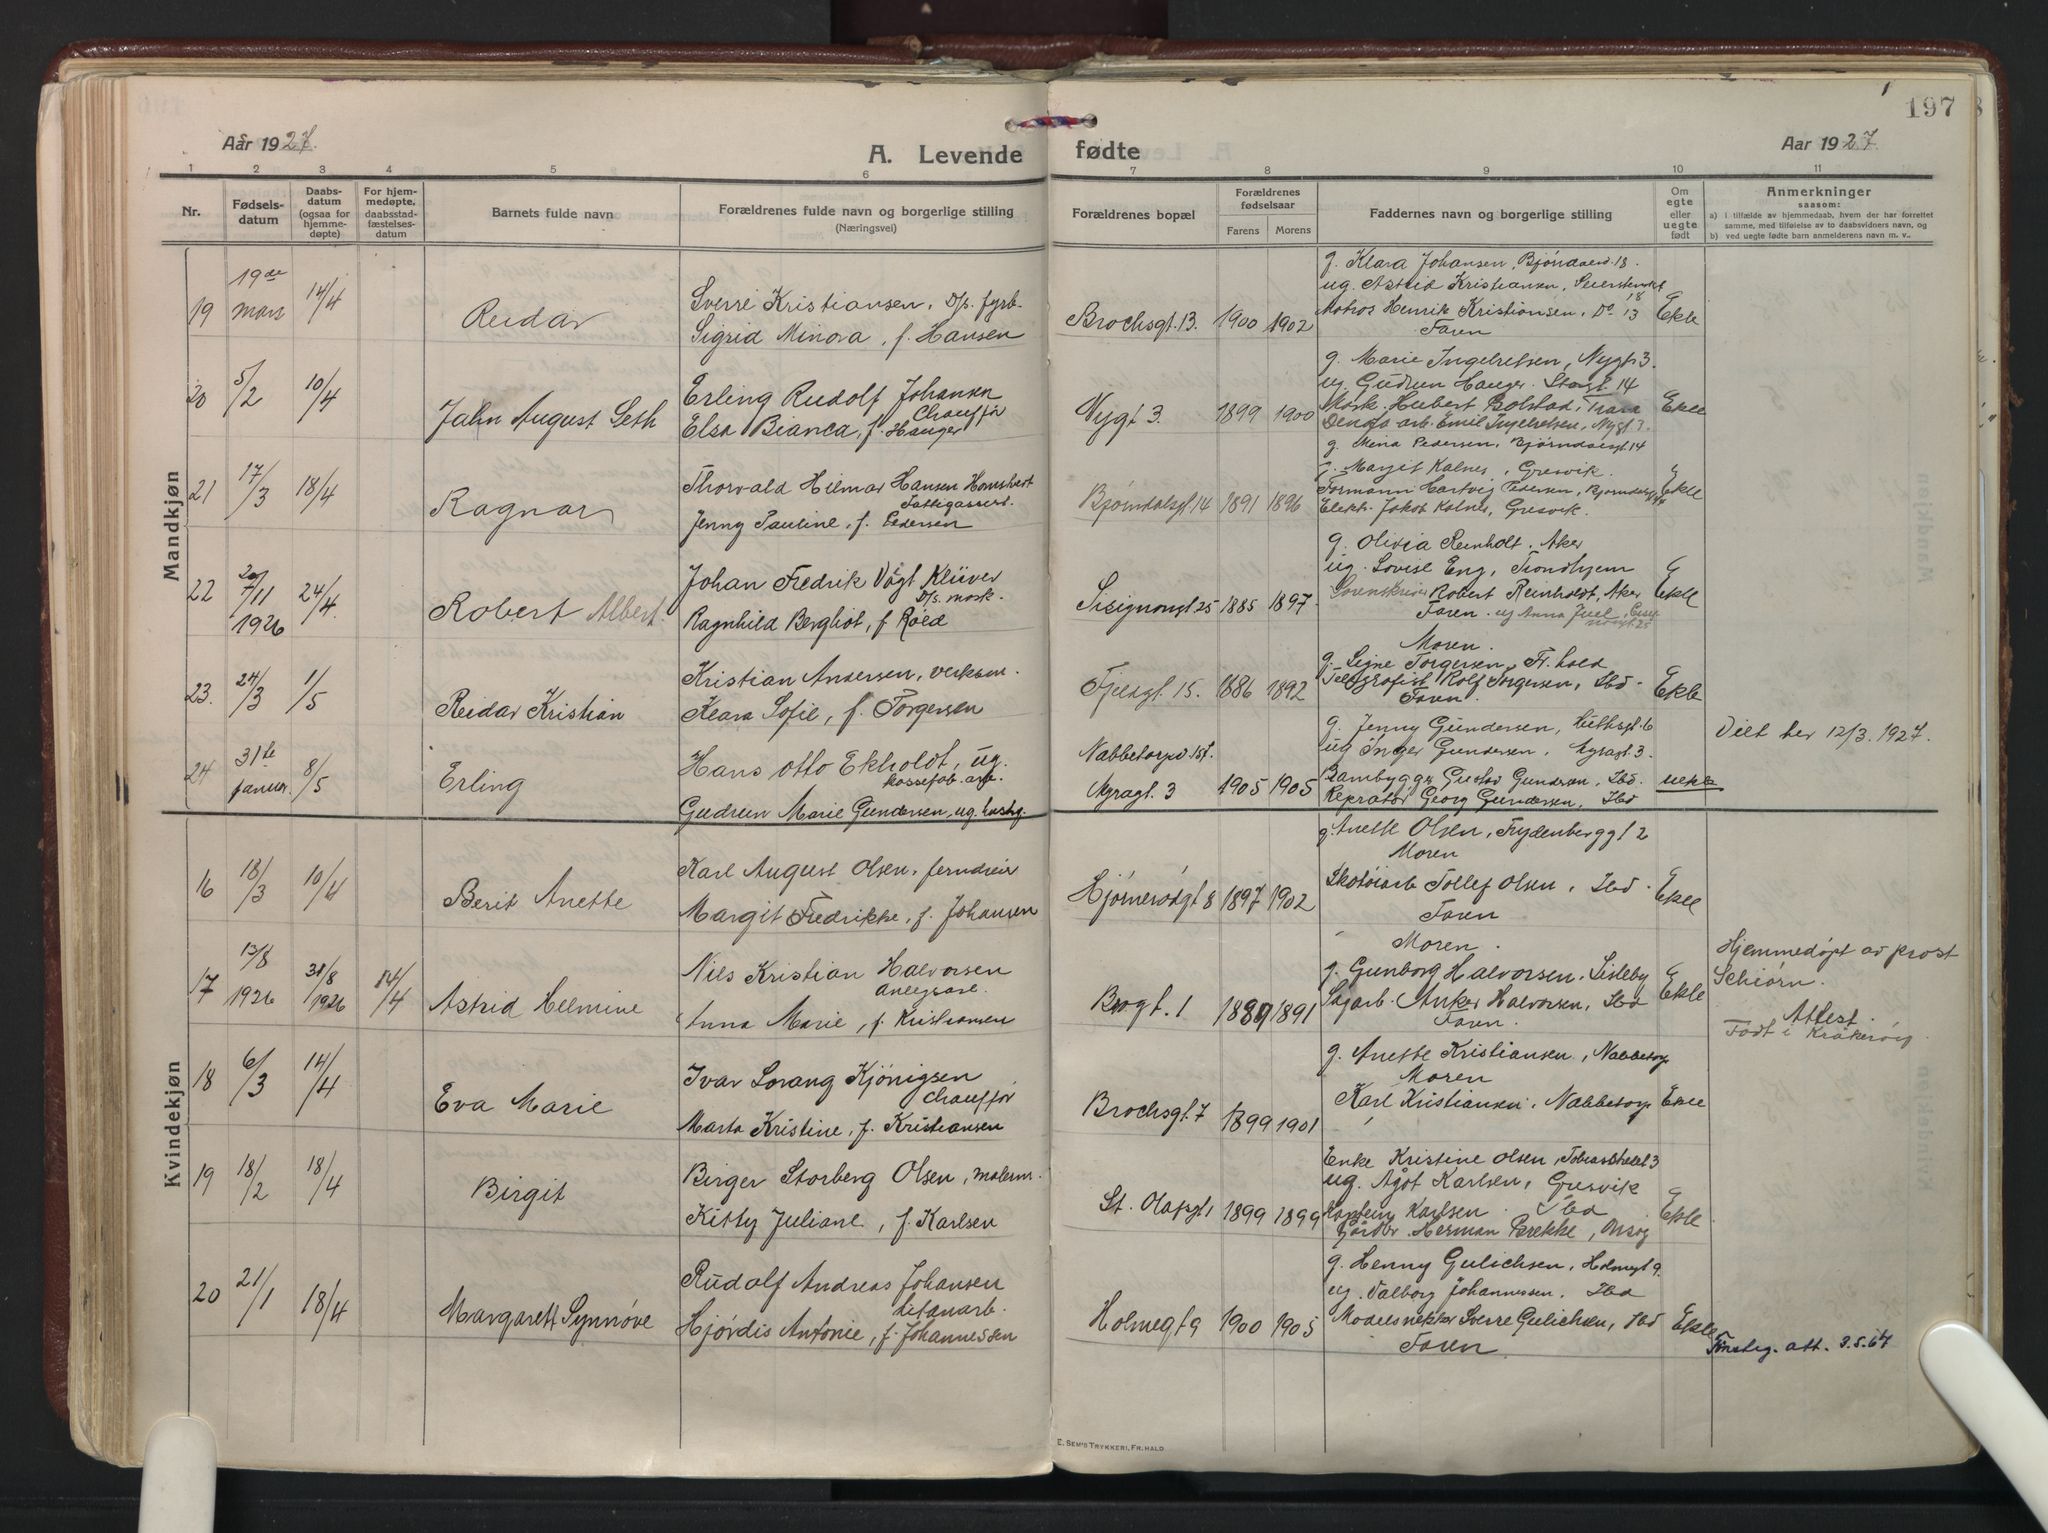 197
Aar 1927.
A. Levende fødte
Aar 1927.
1 2 3 4 5 6 7 8 9 10 11
Nr.
Fødsels-
datum
Daabs-
datum
(ogsaa for
hjemme-
døpte)
For hjem-
medøpte,
daabsstad-
fæstelses-
datum
Barnets fulde navn
Forældrenes fulde navn og borgerlige stilling
(Næringsvei)
Forældrenes bopæl
Forældrenes
fødselsaar
Farens Morens
Faddernes navn og borgerlige stilling
Om
egte
eller
uegte
født
Anmerkninger
saasom:
a) i tilfælde av hjemmedaab, hvem der har forrettet
samme, med tilføielse av to daabsvidners navn, og
b) ved uegte fødte barn anmelderens navn m. v..
Mandkjøn
19 19de mars 14/4 Reidar
Sverre Kristiansen, D/s. fyrb.
Sigrid Minora, f. Hansen
Brochsgt. 13. 1900 1902
g. Klara Johansen, Bjørndalsgt. 18.
ug. Astrid Kristiansen,
Matros Henrik Kristiansen, Do 13
Faren
Ekte
20 5/2 10/4 Jahn August Seth
Erling Rudolf Johansen
Chauffør
Elsa Bianca, f. Hauger
Nygt 3. 1899 1900
g. Marie Ingelretsen, Nygt 3.
ug. Gudrun Hauger. Storgt. 14
Mask. Hubert Bolstad, Trara
arb. Emil Ingelretsen, Nygt 3.
Ekte
21 17/3 18/4 Ragnar
Thorvald Hilmar Hansen Homstvert
Fattigassist.
Jenny Pauline, f. Pedersen
Bjørndalsgt. 14 1891 1896
g. Mina Pedersen, Bjørndalsgt 14
g. Margit Kalnes, Gresvik.
Formann Hartvig Pedersen, Bjørndalsgt 14
Elektr. Jakob Kalnes, Gresvik.
Ekte
22 20/11 1926 24/4. Robert Albert.
Johan Fredrik Vogt Klüver
D/s. mask.
Ragnhild Bergliot, f. Røed
Sisignongt 25 1885 1897.
g. Olivia Reinholt. Aker
ug. Lovise Eng, Trondhjem
Sorenskriver Robert Reinholdt, Aker
Faren. ug Anna Juel,
Ekte
23. 24/3 1/5 Reidar Kristian
Kristian Andersen, verksm.
Klara Sofie, f. Torgersen
Fjelsgt. 15. 1886 1892
Moren.
g. Signe Torgersen, Fr.hald
Telegrafist Rolf Torgersen, Ibd.
Faren.
Ekte
24 31te januar. 8/5 Erling
Hans Otto Ekholdt, ug.
kassefab. arb.
Gudrun Marie Gundersen, ug. hushj.
Nabbetorpv 157.
Nyragt. 3 1905 1905
g. Jenny Gundersen, Huthsgt. 6
ug Inger Gundersen. Nyragt. 3.
Brønbygger Gustav Gundersen, Ibd.
Repratør Georg Gundersen, Ibd
uekte
Vilt her 12/3. 1927.
Kvindekjøn
16 18/3 10/4 Berit Anette
Karl August Olsen, jerndreier
Margit Fredrikke, f. Johansen
Hjørnerødgt 8 1897 1902
g. Anette Olsen, Frydenberggt 2
Moren
Skotøiarb Tollef Olsen, Ibd.
Faren
Ekte
17 13/8 1926 31/8 1926 14/4 Astrid Helmine
Nils Kristian Halvorsen
Anlegsarb.
Anna Marie, f. Kristiansen
Brogt. 1 1889 1891
Moren.
g. Gunborg Halvorsen. Lisleby
Sagarb. Anker Halvorsen, Ibd
Faren.
Ekte
Hjemmedøpt av prost
Schiørn.
Attest.
Født i Kråkerøy
18 6/3 14/4 Eva Marie
Ivar Sorang Kjönigsen
Chauffør
Marta Kristine, f. Kristiansen
Brochsgt. 7 1899 1901
g. Anette Kristiansen, Nabbetorp
Moren
Karl Kristiansen, Nabbetorp
Ekte
19 18/2 18/4 Birgit
Birger Storberg Olsen, malerm.
Kitty Juliane, f. Karlsen
St. Olafsgt 1 1899 1899
Enke Kristine Olsen,
ug. Ågot Karlsen, Gresvik
Kaptein Karlsen. Ibd
Herman Brekke, Onsøy
Ekte
20 21/1 18/4 Margarett Synnøve
Rudolf Andreas Johansen
titanarb.
Hjørdis Antonie, f. Johannessen
Holmegt 9 1900 1905
g. Henny Gulichsen, Holmegt 9.
ug. Valborg Johannessen. Ibd
Modelsnekker Sverre Gulichsen, Ibd
Faren
Ekte
att. 3.5.67
E. SEM'S TRYKKERI, FR.HALD